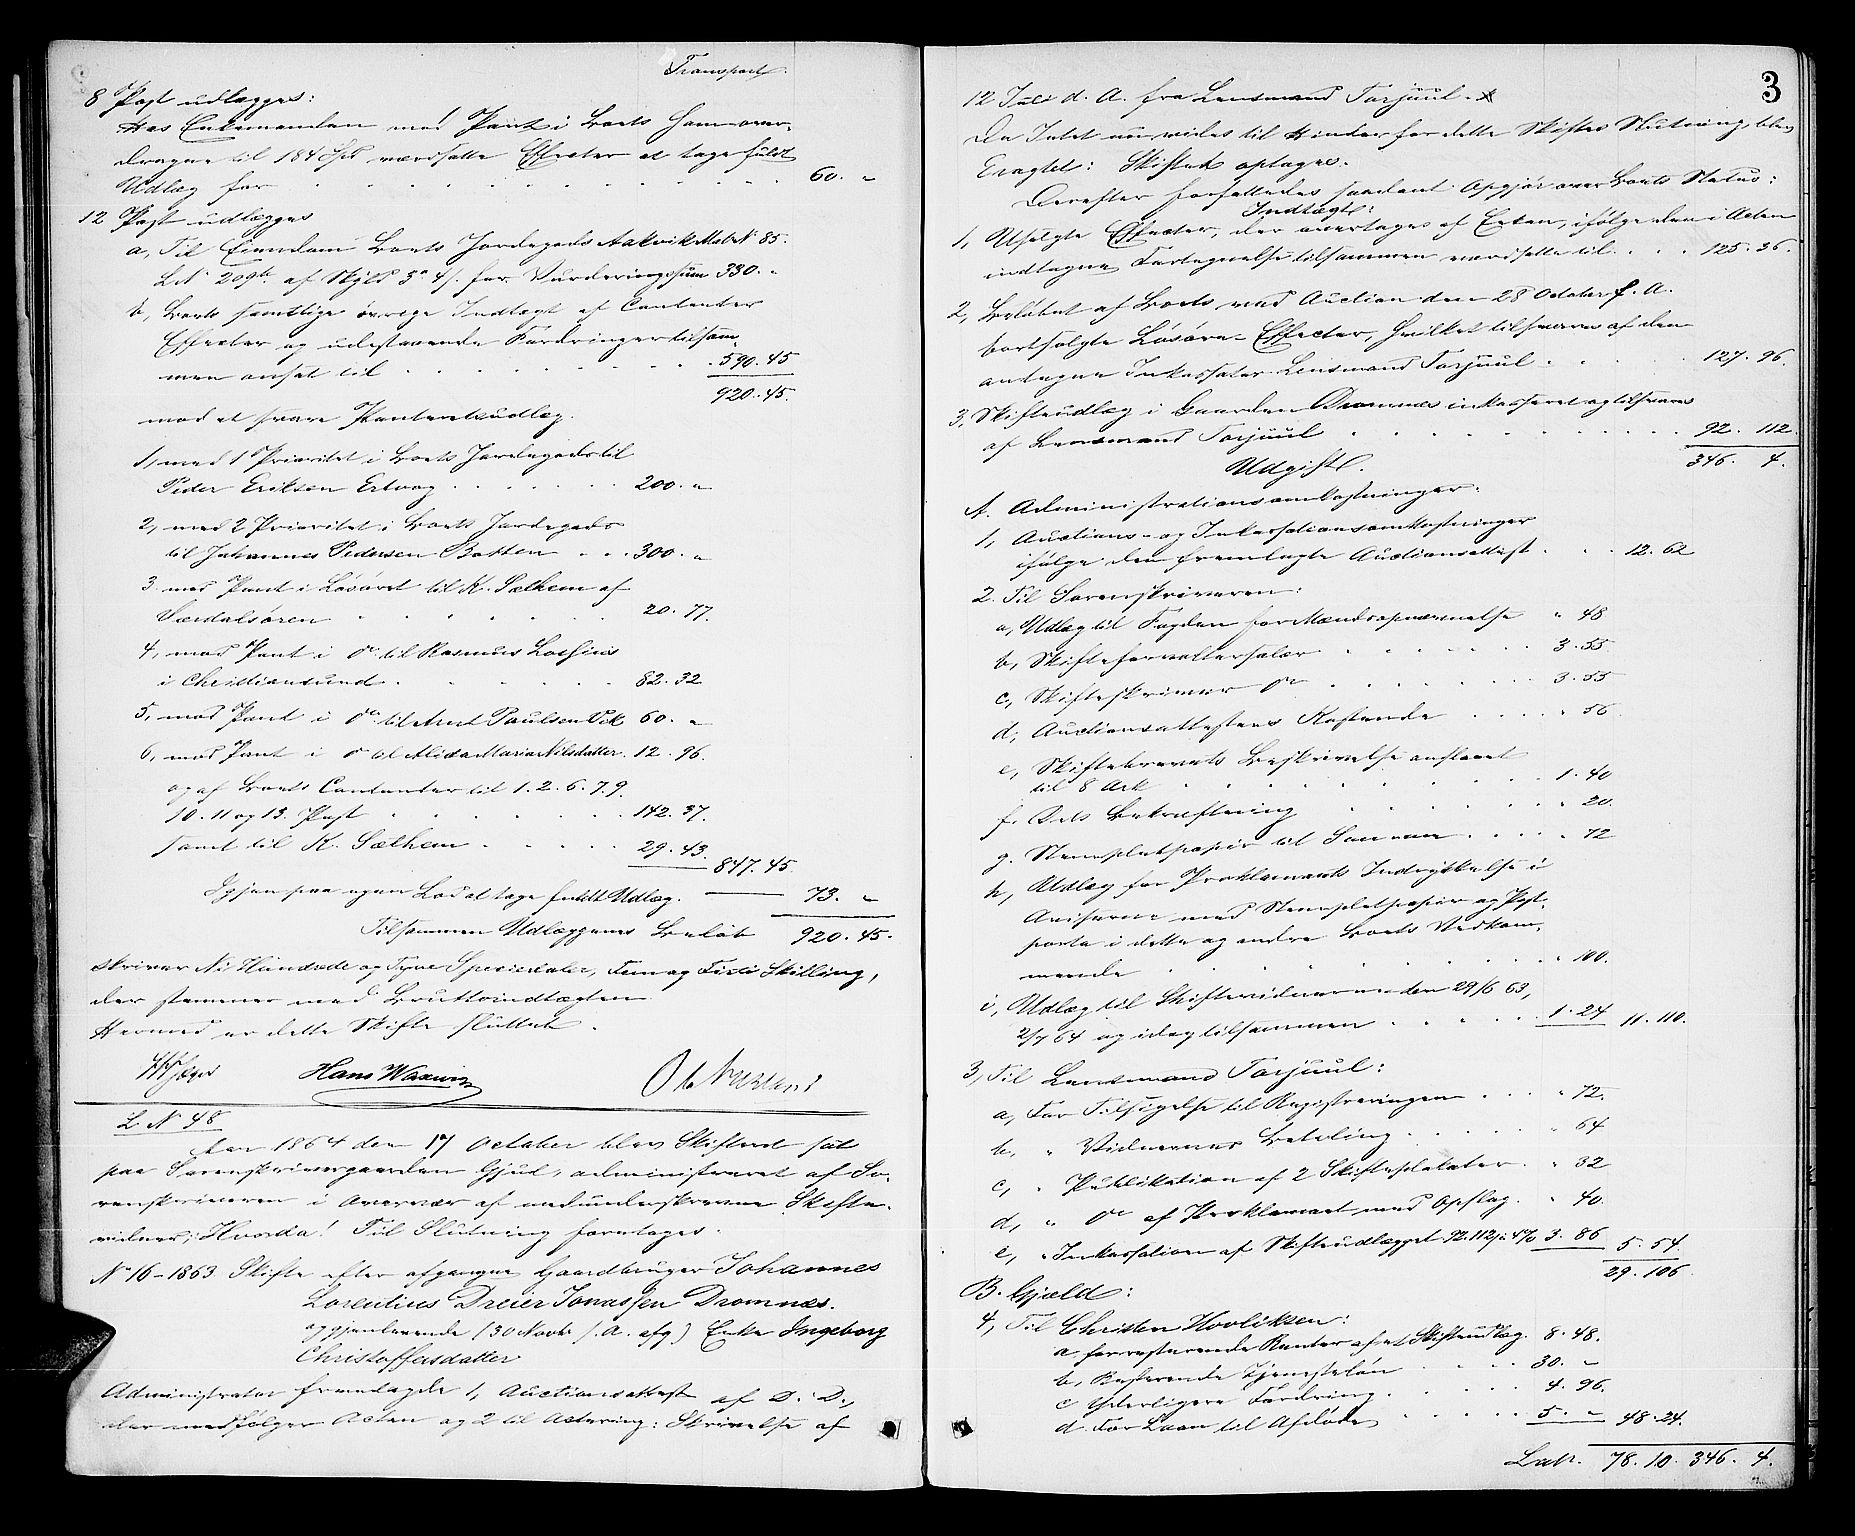 Transport
8 Post udlægges:
Hos Enkemanden mod Pant i Boets ham over-
dragne til 184 Spd værdsatte Effecter at tage fuldt
Udlæg for 60. "
12 Post udlægges
a, Til Eiendom Boets Jordegods Aakvik Mat N 85.
L N 209b af Skyld 3 4 /. for Vurderingssum 330. "
b, Boets samtlige øvrige Indtægt af Contanter
Effecter og udestaaende Fordringer tilsam-
men anset til 590. 45
920. 45.
mod at svare Panteretsudlæg.
1, med 1 Prioritet i Boets Jordegods til
Peder Eriksen Ertvog 200. "
2, med 2 Prioritet i Boets Jordegods
til Johannes Pedersen Botten 300. "
3. med Pant i Løsøret til K. Sælhem af
Værdalsøren 20. 77.
4, med Pant i Do til Rasmus Lossius
i Christiansund 82. 32
5, med Pant i Do til Arnt Paulsen 60. "
6, med Pant i Do til Alida Maria Nilsdatter 12. 96.
og af Boets Contanter til 1. 2. 6. 7. 9.
10. 11 og 13. Post 142. 37.
samt til K. Sælhem 29. 43.
847. 45.
Igjen paa egen Lod at tage fuldt Udlæg. 73. "
Tilsammen Udlæggenes Beløb 920. 45.
skriver Ni Hundrede og Tyve Speciedaler, Fem og Firti Skilling,
der stemmer med Bruttoindtægten
Hermed er dette Skifte sluttet.
Hans Waxwig
L N 48
Aar 1864 den 17 October blev Skifteret sat
paa Sorenskrivergaarden Gjul, administreret af So-
renskriveren i Overvær af medunderskrevne Skifte-
vidner; Hvorda! Til Slutning foretages.
No 16 - 1863. Skifte efter afgangne Gaardbruger Johannes
Lorentius Dreier Jonassen Dromnæs.
og gjenlevende (30 Novbr f. A. afg.) Enke Ingeborg
Christoffersdatter
Administrator fremlagde 1, Auctionsattest af D. D.,
der medfølger Acten og 2 til Actering: Skrivelse af
3
12 Juli d. A. fra Lensmand Torjuul.
Da Intet nu vides til Hinder for dette Skiftes Slutning, blev
Eragtet: Skiftet optages.
Derefter forfattedes saadant Opgjør over Boets Status:
Indtægt:
1, Usolgte Effecter, der overtages af Enken, ifølge den i Acten
indtagne Fortegnelse tilsammen værdsatte til 125. 36.
2, Beløbet af Boets ved Auction den 28 October f. A.
bortsolgte Løsøre-Effecter, hvilket tilsvares af den
antagne Inkassator Lensmand Torjuul 127. 96.
3, Skifteudlæg i Gaarden Dromnæs inkasseret og tilsvares
af Lensmand Torjuul 92. 112.
346. 4.
Udgift.
A. Administrationsomkostninger:
1, Auctions- og Inkassationsomkostninger
ifølge den fremlagte Auctionsattest 12. 62
2. Til Sorenskriveren:
a, Udlæg til Fogden for Mændsopnævnelse " 48
b, Skifteforvaltersalær 3. 55.
c, Skifteskriver Do 3. 55
d, Auctionsattestens Kostende " 56.
e, Skiftebrevets Beskrivelse anslaaet
til 8 Ark 1. 40
f. Dets Bekræftning " 20.
g. Stempletpapir til Samme " 72
h, Udlæg for Proklamaets Indrykkelse i
Aviserne med Stempletpapir og Post-
porto i dette og andre Boets Vedkom-
mende " 100.
i, Udlæg til Skiftevidnerne den 29/6 63,
2/7 64 og idag tilsammen 1. 24 11. 110.
3, Til Lensmand Torjuul:
a, For Tilsigelse til Registreringen " 72.
b, " Vidnernes Betaling " 64
c, " Publikation af 2 Skifteplakater " 32
d, " Do af Proklamaet med Opslag " 40.
e, " Inkassation af Skifteudlægget 92. 112 /: 4% 3. 86 5. 54.
29. 106
B. Gjæld:
4, Til Christen Hovliksen:
a, for resterende Renter af et Skifteudlæg. 8. 48.
b, Resterende Tjenesteløn 30. "
c Yderligere Fordring 4. 96.
d. For Laan til Afdøde 5. " 48. 24.
Lat. 78. 10. 346. 4.